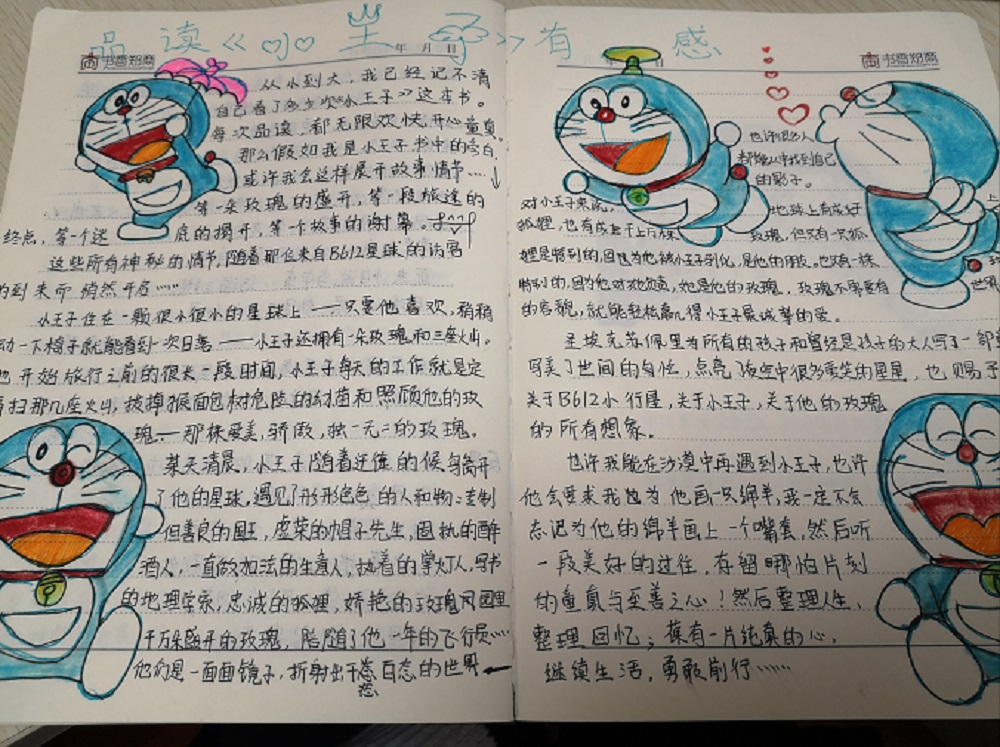 品读《小王子》有感
年 月 日
书香郑商
书香郑商
从小到大，我已经记不清
自己看了多少次《小王子》这本书。
每次品读，都无限欢快，开心童真。
那么假如我是小王子书中的旁白，
或许我会这样展开故事情节……
等一朵玫瑰的盛开，等一段旅途的
终点，等一个迷底的揭开，等一个故事的谢幕。
这些所有神秘的情节，随着那位来自B612星球的访客
的到来而悄然开启……
小王子住在一颗很小很小的星球上——只要他喜欢，稍稍
动一下椅子就能看到一次日落——小王子还拥有一朵玫瑰和三座火山。
他开始旅行之前的很长一段时间，小王子每天的工作就是定
扫那几座火山，拔掉猴面包树危险的幼苗和照顾他的玫
瑰——那株爱美，骄傲，独一无二的玫瑰。
某天清晨，小王子随着迁徙的候鸟离开
了他的星球，遇见了形形色色的人和物：专制
但善良的国王，虚荣的帽子先生，固执的醉
酒人，一直做加法的生意人，执着的掌灯人，写书
的地理学家，忠诚的狐狸，娇艳的玫瑰园里
千万朵盛开的玫瑰，陪随了他一年的飞行员……
他们是一面面镜子，折射出千态百态的世界
态
也许很多人
都能从中找到自己
的影子。
对小王子来说，地球上有成千上
狐狸，也有成千上万朵玫瑰，但只有一只狐
狸是特别的，因为他被小王子驯化，是他的朋友。也只有一株玫
特别的，因为他对她负责，她是他的玫瑰，玫瑰不需要有世界
的容貌，就能轻松赢得小王子最诚挚的爱。
圣埃克苏佩里为所有的孩子和曾经是孩子的大人写了一部
写美了世间的身份，点亮了夜空中很多爱笑的星星，也赐予
关于B612小行星，关于小王子，关于他的玫瑰
的所有想象。
也许我能在沙漠中再遇到小王子，也许
他会要求我也为他画一只绵羊，我一定不会
忘记为他的绵羊画上一个嘴套，然后听
一段美好的过往，存留哪怕片刻
的童真与至善之心！然后整理人生，
整理回忆；葆有一片纯真的心，
继续生活，勇敢前行……